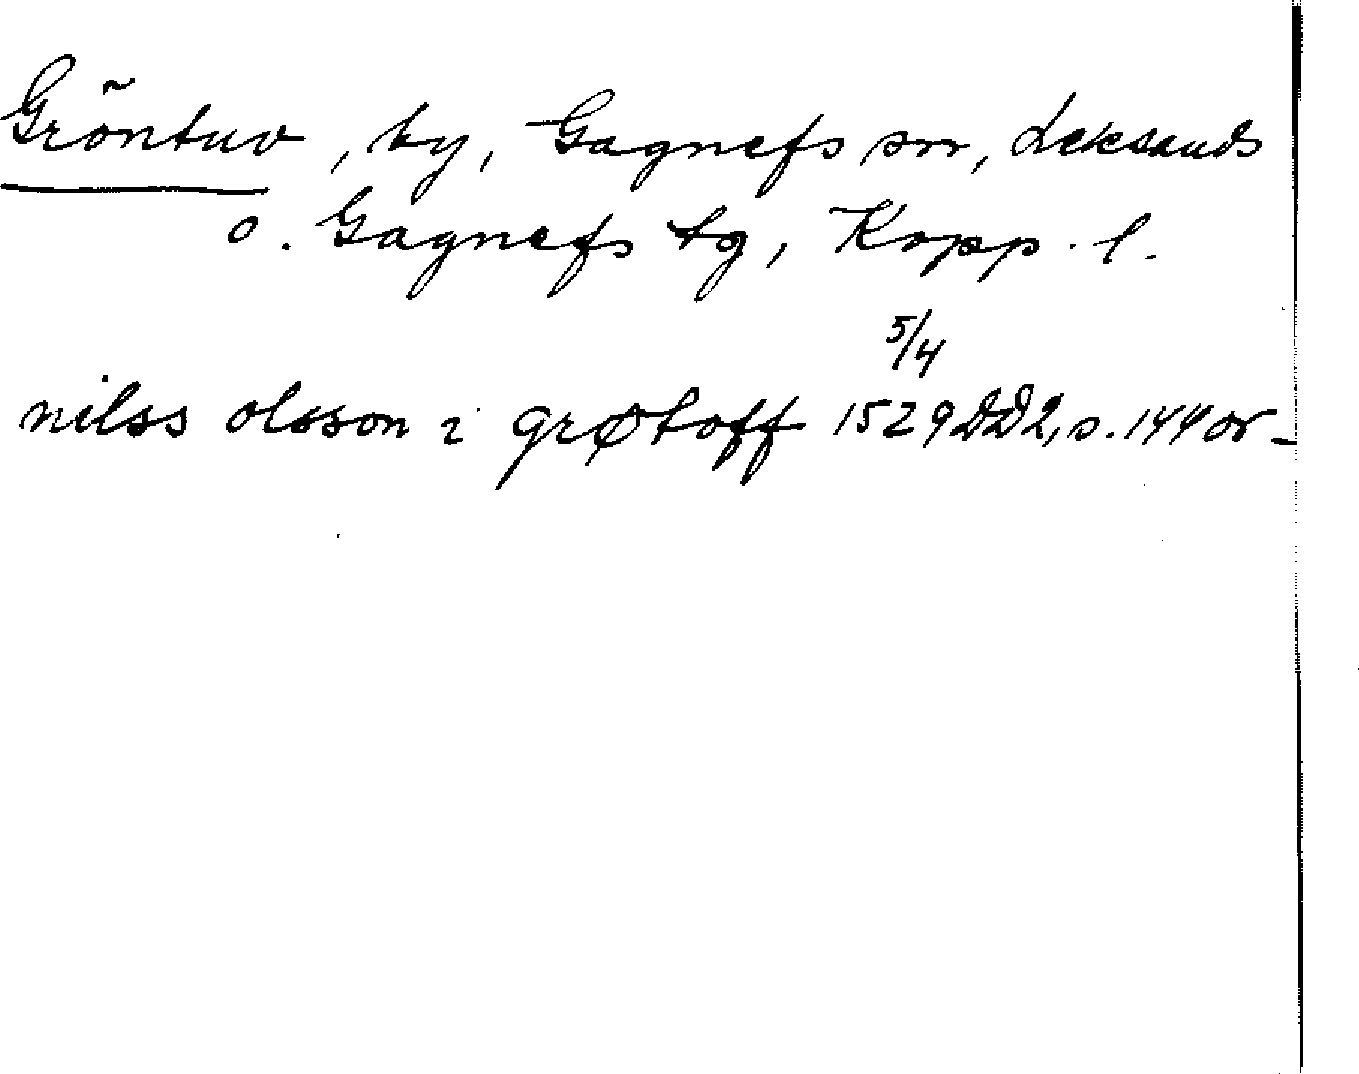 Gröntuv, by, Gagnefs sn, Leksands
o. Gagnefs tg, Kopp. l.
5/4
nilss olsson i grøtoff 1529 DD2, s. 144 or-